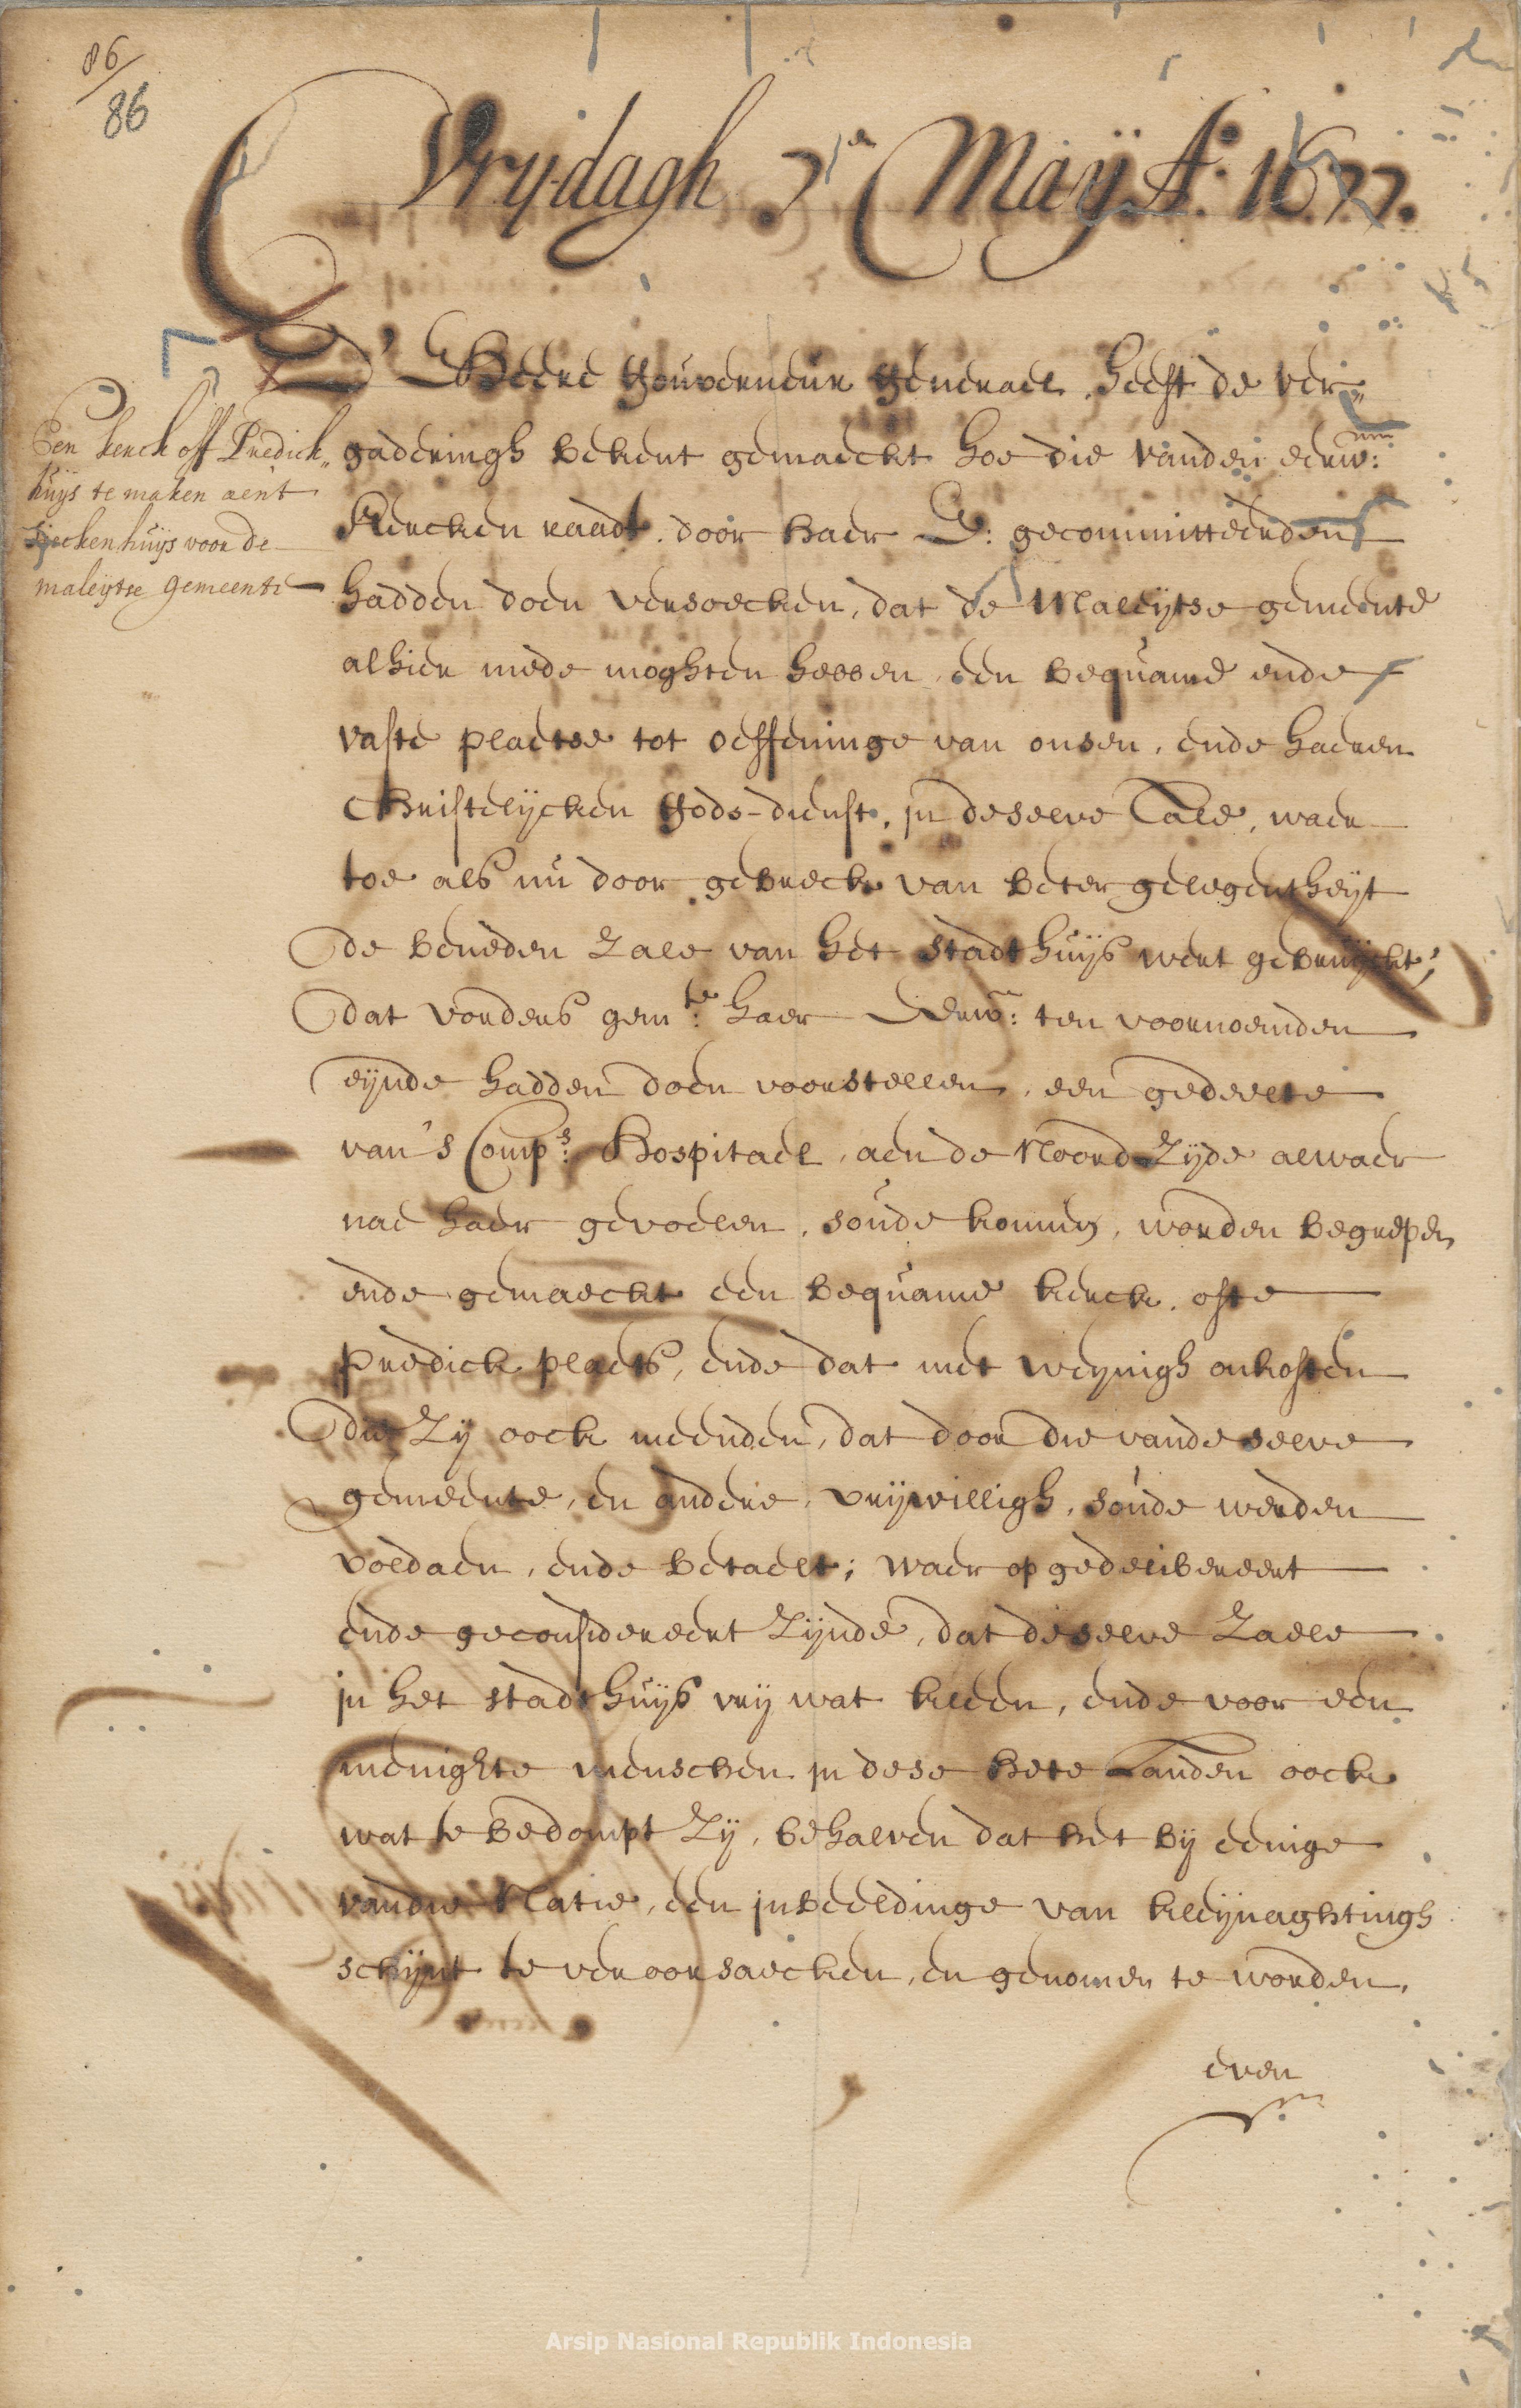 86
86
Vrydagh 7en Maÿ Ao: 1677.
d' Heere Gouverneur Generael, heeft de ver„
gaderingh bekent gemaeckt hoe die vanden eerw:
Kercken raadt. door haer E: gecommitteerden
hadden doen versoecken, dat de Maleÿtse gemeente
alhier mede moghten hebben, een bequame ende
vaste plaetse tot oeffeninge van onsen, ende haeren
Christelÿcken Gods-dienst, in deselve Tale, waer
toe als nu door gebreck van beter gelegentheÿt
de beneden zale van het stadthuÿs wert gebruÿckt;
dat vorders gemte: haer Eerw: ten voornoemden
eÿnde hadden doen voorstellen, een gedeelte
van's Comps: Hospitael, aen de Noord Zÿde alwaer
nae haer gevoelen, soude konnen, worden begrepen
ende gemaeckt een bequame kerck. ofte
Predick plaets, ende dat met weÿnigh onkosten
die Zÿ oock meenden, dat door die vande selve
gemeente, en andere, vrÿwilligh, soude werden
voldaen, ende betaelt; waer op gedelibereert
ende geconsidereert Zÿnde, dat deselve Zaele
in het stadthuÿs vrÿ wat kleen, ende voor een
menighte menschen in dese hete Landen oock
wat te bedompt Zÿ, behalven dat het bÿ eenige
van die Natie, een inbeeldinge van kleÿnaghtingh
schÿnt te veroorsaecken, en genomen te worden,
even
Een kerck off Predick„
huÿs te maken aen't
sieckenhuÿs voor de
maleÿtse gemeente
Arsip Nasional Republik Indonesia